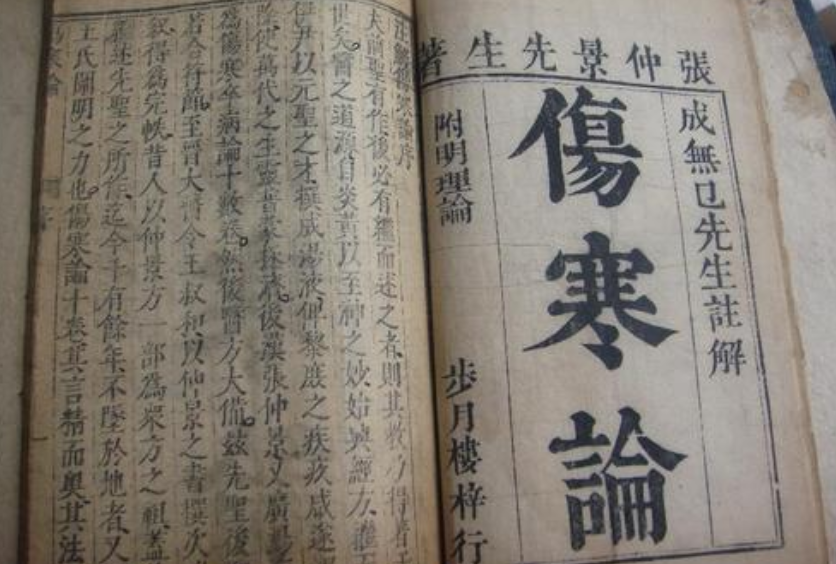 張仲景先生著
成無已先生註解
傷寒論
附明理論
步月樓梓行
註解傷寒論序
夫前聖有作後必有繼而述之者則其教乃得著
世矣醫之道源自炎黃以至神之妙始興經方繼
伊尹以元聖之才撰成湯液俾黎庶之疾疢咸遂
除使萬代之生靈普蒙拯濟後漢張仲景又廣湯
為傷寒卒病論十數卷然後醫方大備茲先聖後
若合符節至晉太醫令王叔和以仲景之書撰次
敘得為完帙昔人以仲景方一部為眾方之祖蓋
繼述先聖之所作迄今千有餘年不墜於地者又
王氏闡明之力也傷寒論十卷其言精而奧其法
傷寒論